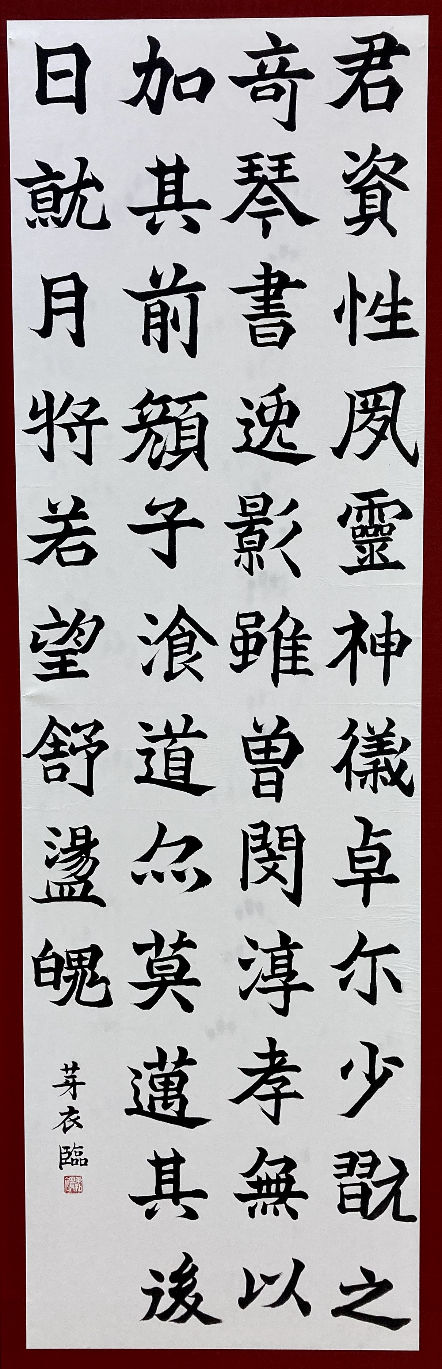 君資性夙靈神儀卓尔少翫之
奇琴書逸影雖曾閔淳孝無以
加其前顔子飡道亦莫邁其後
日就月将若望舒盪魄
芽衣臨